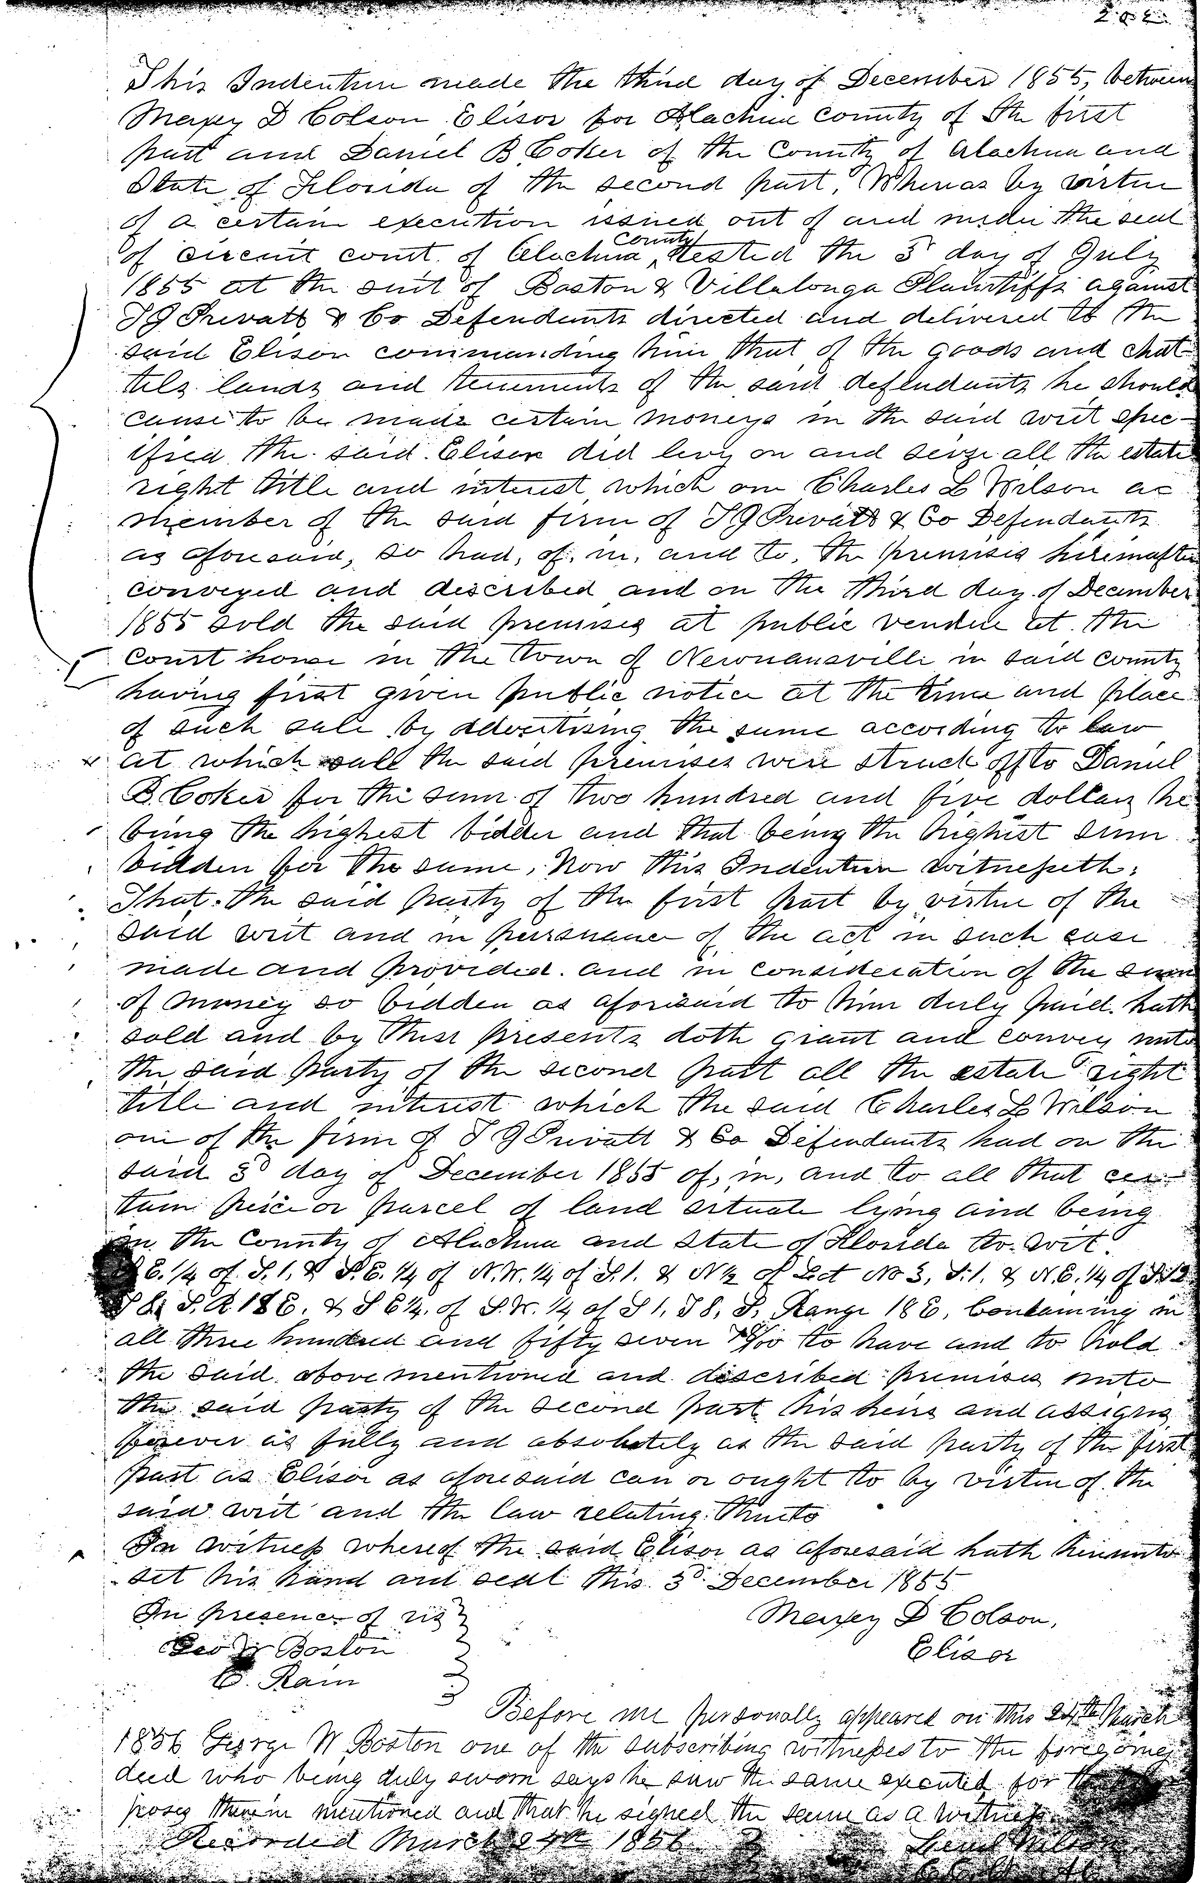 This Indenture made the third day of December 1855, between
Maxey D Colson Elisor for Alachua county of the first
part and Daniel B. Coker of the County of Alachua and
State of Florida of the second part, Whereas by virtue
of a certain execution issued out of and under the seal
of circuit court of Alachua County tested the 3d day of July
1855 at the suit of Boston & Villalonga Plaintiffs against
T J Prevatt & Co Defendants directed and delivered to the
said Elisor commanding him that of the goods and chat-
tels lands and tenements of the said defendants he should
cause to be made certain moneys in the said writ spec-
ified the said Elisor did levy on and seize all the estate
right title and interest which one Charles L Wilson as
member of the said firm of T J Prevatt & Co Defendants
as aforesaid, so had, of, in, and to, the premises hereinafter
conveyed and described and on the third day of December
1855 sold the said premises at public vendue at the
court house in the town of Newnansville in said county
having first given public notice at the time and place
of such sale by advertising the same according to law
at which sale the said premises were struck off to Daniel
B. Coker for the sum of two hundred and five dollars he
being the highest bidder and that being the highest sum
bidden for the same, Now this Indenture witnesseth:
That the said party of the first part by virtue of the
said writ and in pursuance of the act in such case
made and provided and in consideration of the sum
of money so bidden as aforesaid to him duly paid hath
sold and by these presents doth grant and convey unto
the said party of the second part all the estate right
title and interest which the said Charles L Wilson
one of the firm of T J Prevatt & Co Defendants had on the
said 3d day of December 1855 of, in, and to all that cer-
tain piece or parcel of land situate lying and being
in the County of Alachua and State of Florida to wit.
E. 1/4 of S. 1, & S. E. 1/4 of N. W. 1/4 of S. 1 & N 1/2 of Lot No 3, S. 1. & N. E. 1/4 of S. 12
T 8, S. R. 18 E. & S E 1/4 of S. W. 1/4 of S 1, T 8, S, Range 18 E, Containing in
all three hundred and fifty seven /100 to have and to hold
the said above mentioned and described premises unto
the said party of the second part his heirs and assigns
forever as fully and absolutely as the said party of the first
part as Elisor as aforesaid can or ought to by virtue of the
said writ and the law relating thereto
In witness whereof the said Elisor as aforesaid hath hereunto
set his hand and seal this 3d December 1855
In presence of us
Maxey D Colson,
Geo W Boston
Elisor
C. Rain
Before me personally appeared on this 24th March
1856 George W Boston one of the subscribing witnesses to the foregoing
deed who being duly sworn says he saw the same executed for the
poses therein mentioned and that he signed the same as a witness
Recorded March 24th 1856